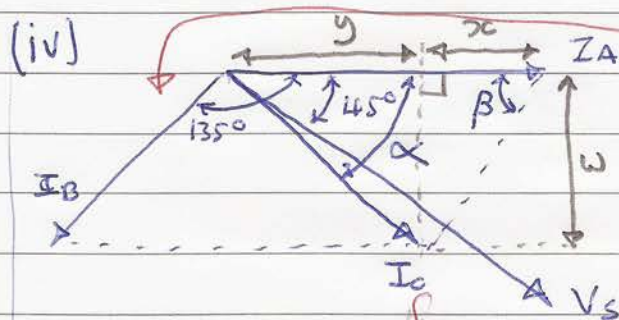 (iv)
y x
I_A
135° 45° β
α ω
I_B
I_C
V_S